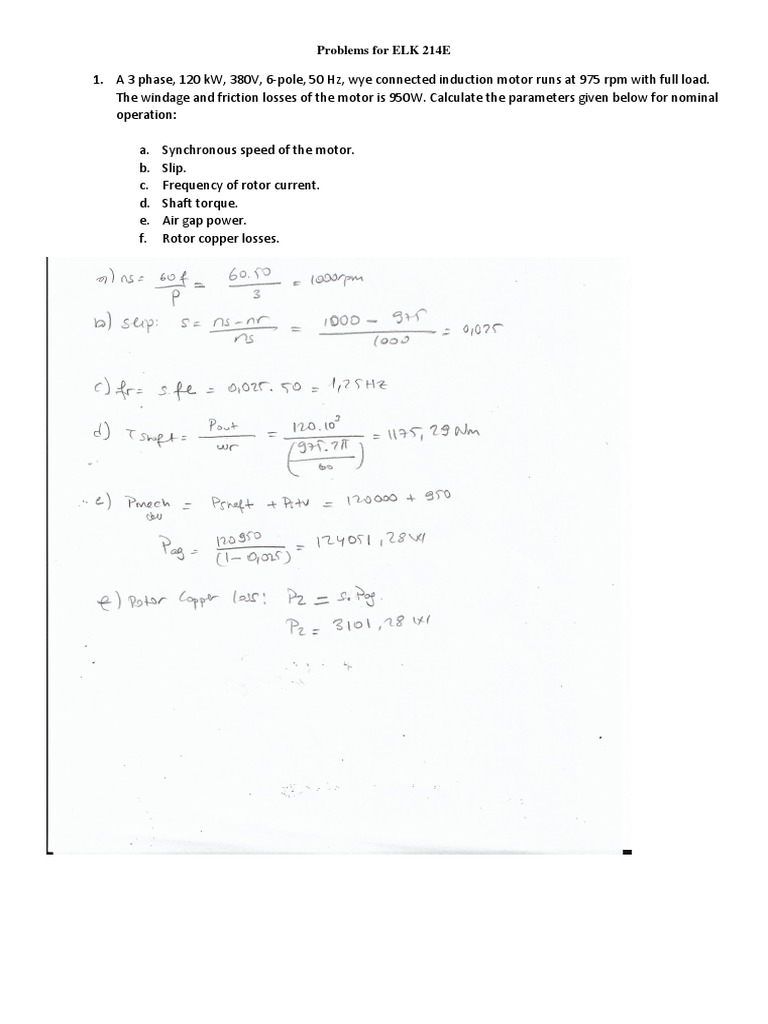 Problems for ELK 214E
1. A 3 phase, 120 kW, 380V, 6-pole, 50 Hz, wye connected induction motor runs at 975 rpm with full load.
The windage and friction losses of the motor is 950W. Calculate the parameters given below for nominal
operation:
a. Synchronous speed of the motor.
b. Slip.
c. Frequency of rotor current.
d. Shaft torque.
e. Air gap power.
f. Rotor copper losses.
a) ns = 60f / P = 60.50 / 3 = 1000rpm
b) slip: s = ns - nr / ns = 1000 - 975 / 1000 = 0,025
c) fr = s.fe = 0,025.50 = 1,25Hz
d) T shaft = Pout / wr = 120.10³ / (975.2π / 60) = 1175,29 Nm
e) Pmech = Pshaft + P+v = 120000 + 950
Pag = 120950 / (1-0,025) = 124051,28W
f) Rotor Copper loss: P2 = s.Pag.
P2 = 3101,28 W